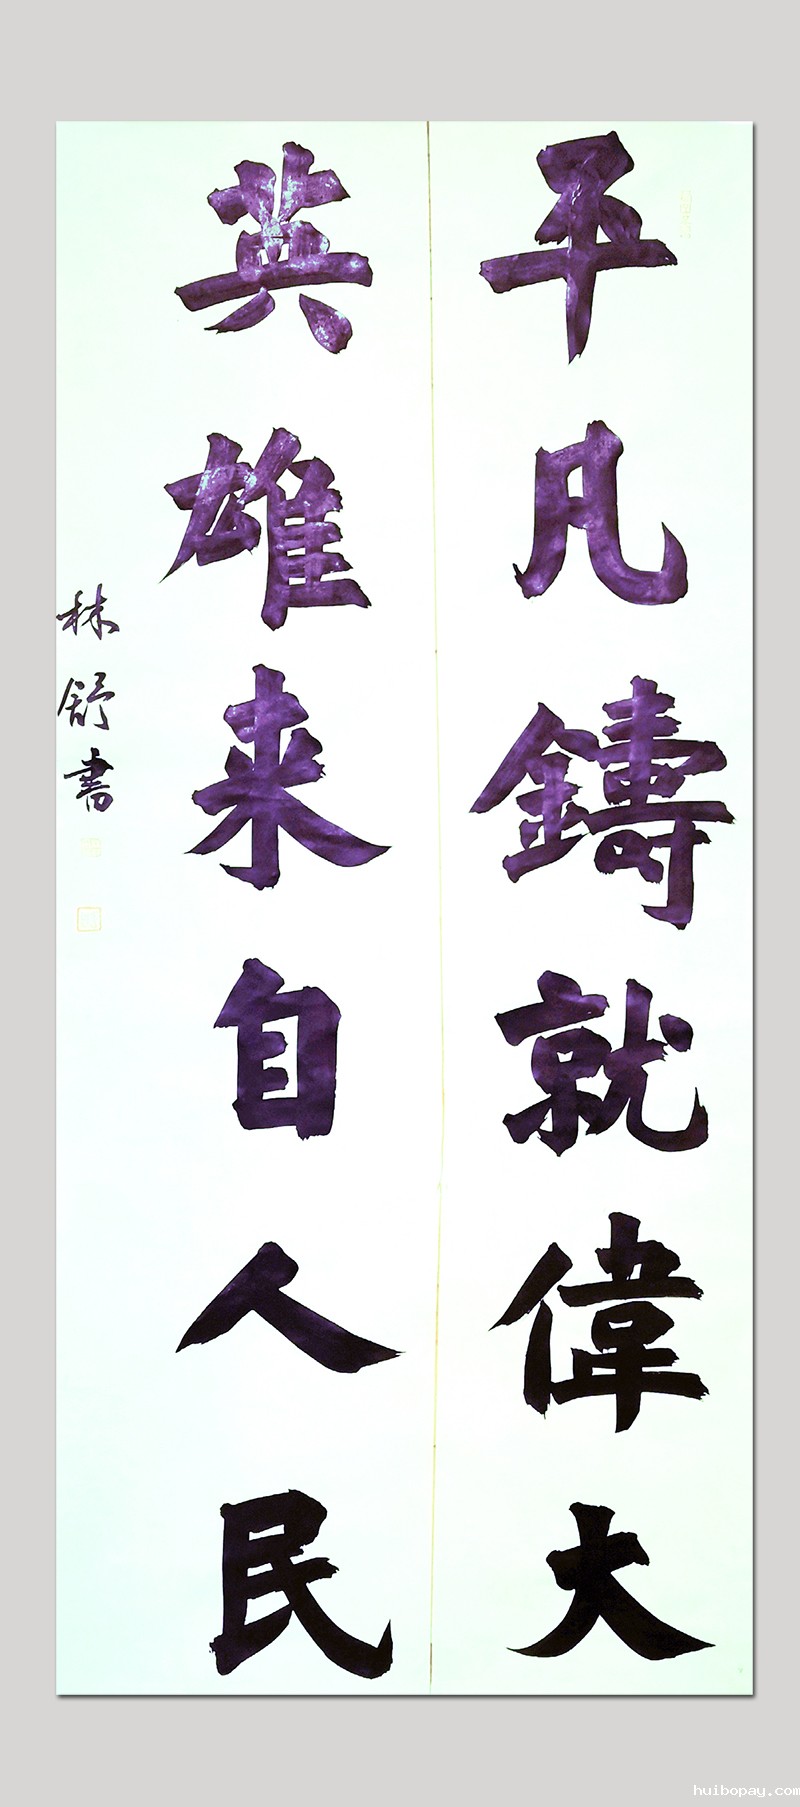 平凡鑄就偉大
英雄来自人民
林舒書
huibopay.com